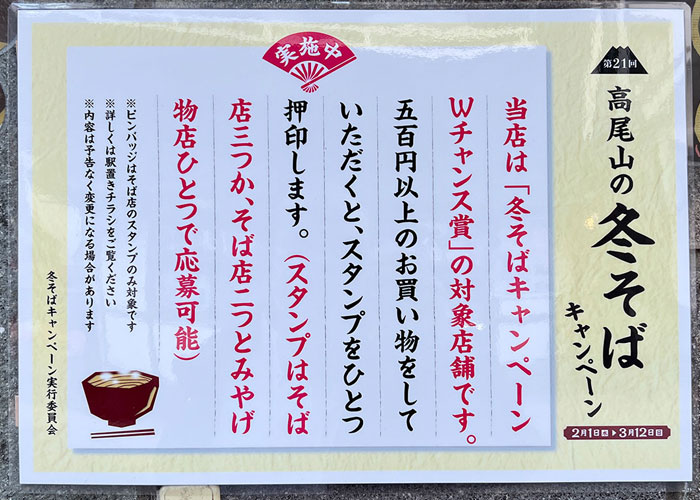 第21回
高尾山の冬そば
キャンペーン
2月1日水▶3月12日日
実施中
当店は「冬そばキャンペーン
Wチャンス賞」の対象店舗です。
五百円以上のお買い物をして
いただくと、スタンプをひとつ
押印します。(スタンプはそば
店三つか、そば店二つとみやげ
物店ひとつで応募可能)
※ピンバッジはそば店のスタンプのみ対象です
※詳しくは駅置きチラシをご覧ください
※内容は予告なく変更になる場合があります
冬そばキャンペーン実行委員会